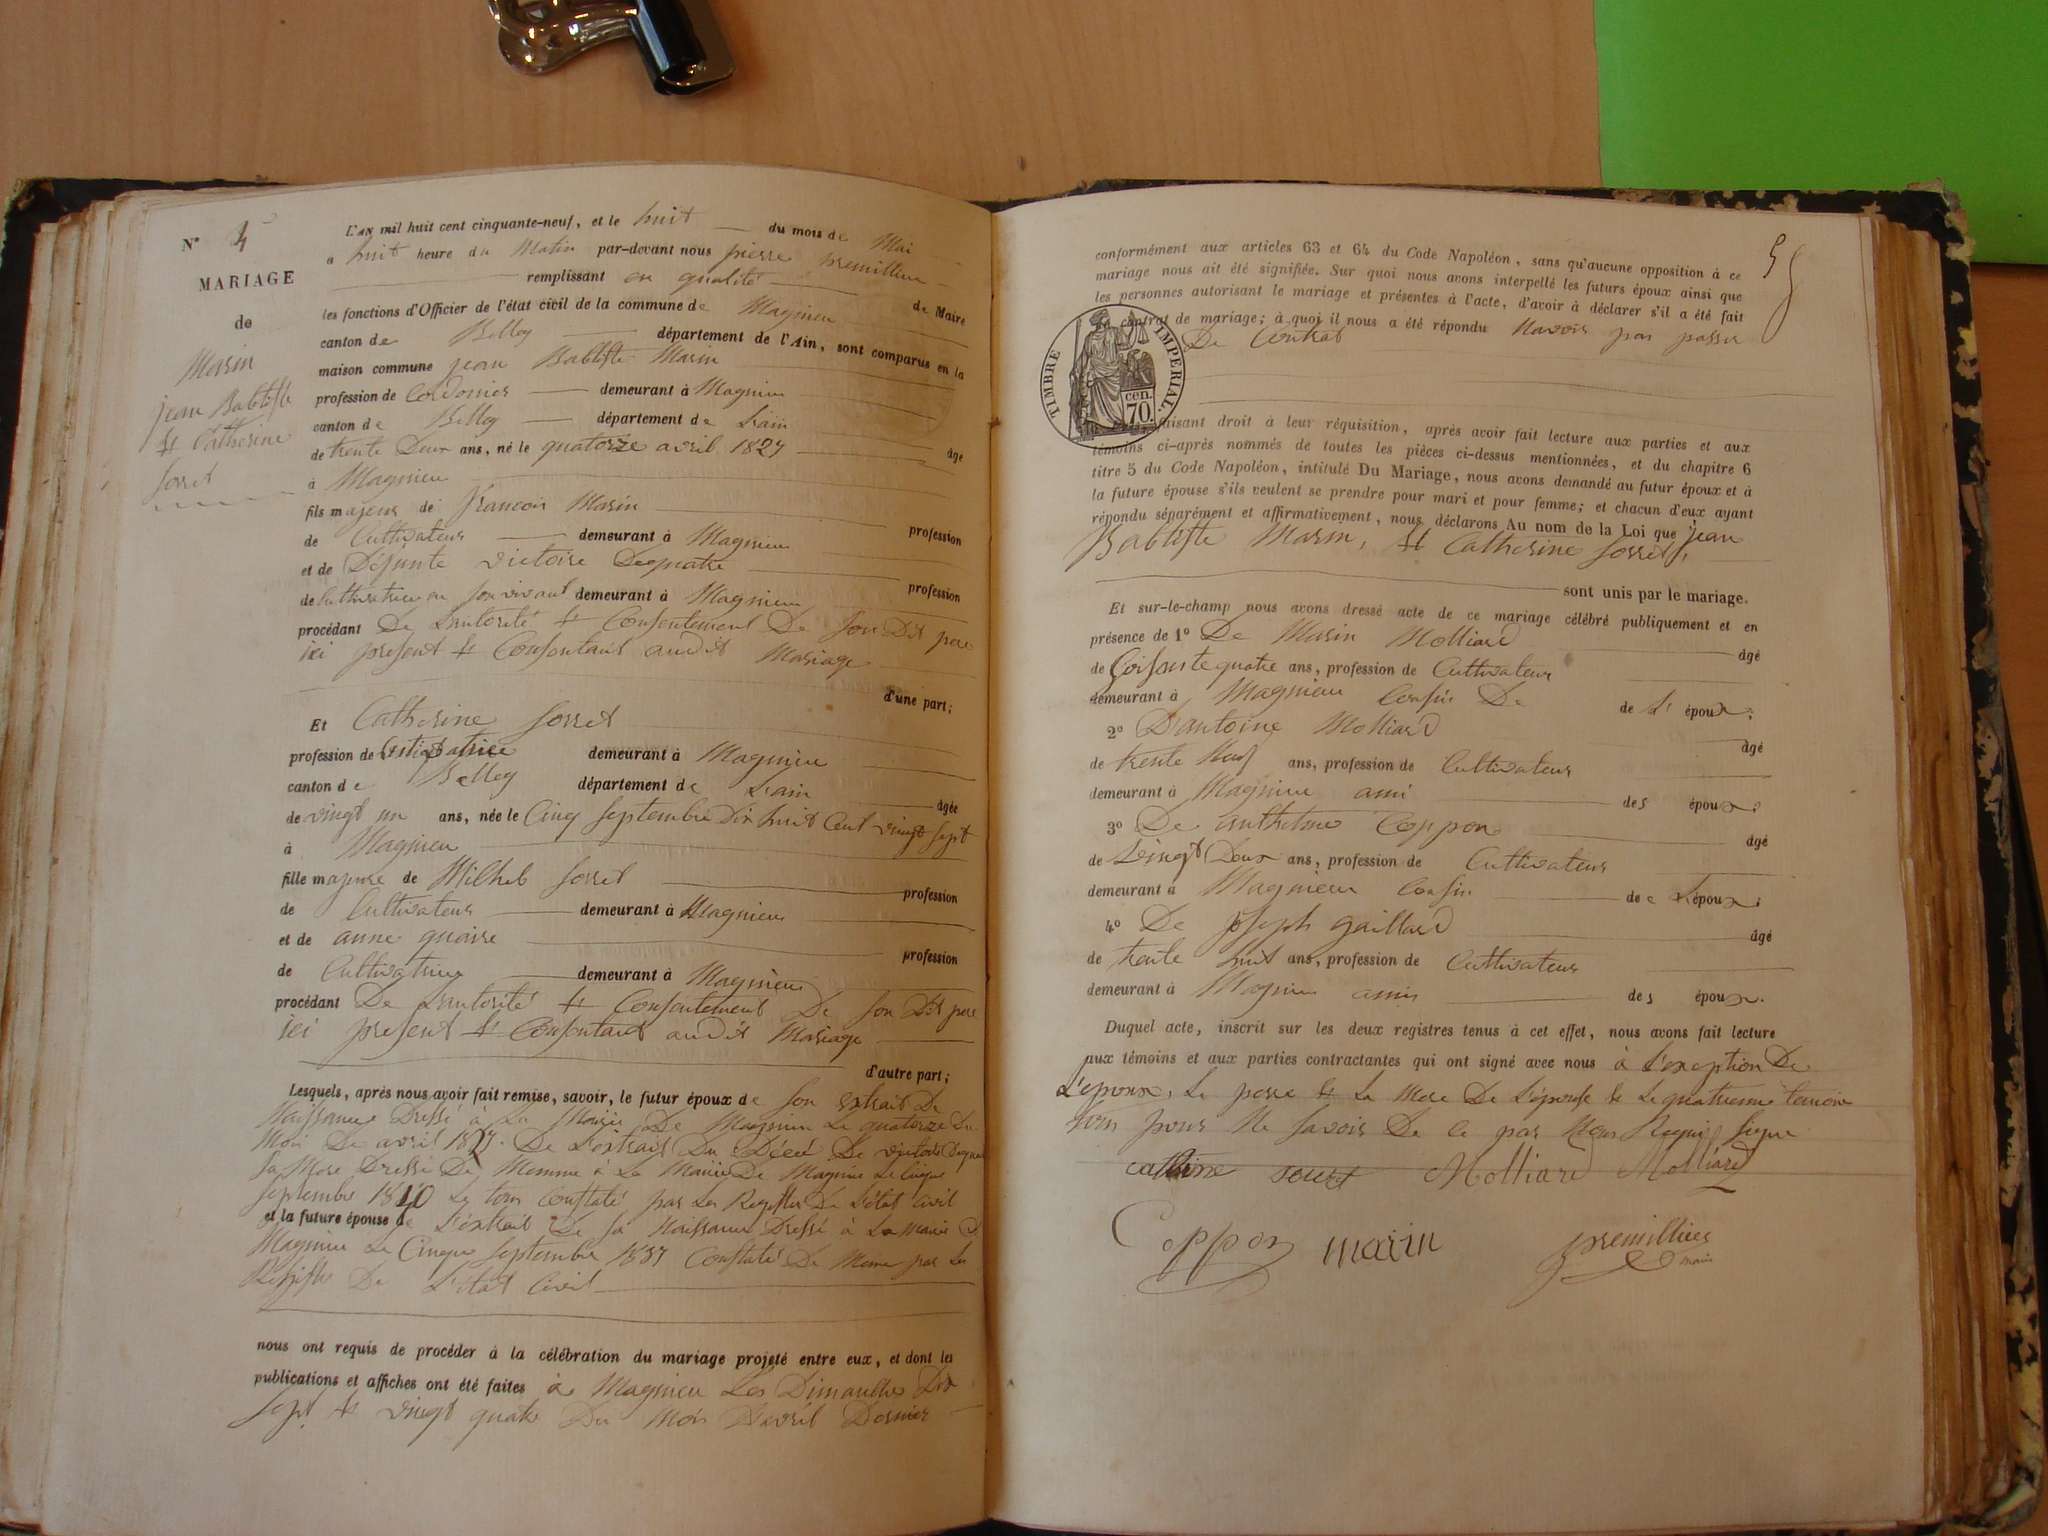 N° 4
MARIAGE
de
Marin
jean Babtiste
et Catherine
Sorret
L'an mil huit cent cinquante-neuf, et le huit du mois de Mai
a huit heure du Matin par-devant nous pierre premillieu
remplissant en qualité de Maire
les fonctions d'Officier de l'état civil de la commune de Magnieu
canton de Belley département de l'Ain, sont comparus en la
maison commune jean Babtiste Marin
profession de Cordonier demeurant à Magnieu
canton de Belley département de L'ain âgé
de trente Deux ans, né le quatorze avril 1827
à Magnieu
fils majeur de francois Marin profession
de Cultivateur demeurant à Magnieu
et de Défunte victoire Dequatre profession
de Cultivatrice en son vivant demeurant à Magnieu
procédant De Lautorité et Consentement De son Dit pere
ici present et Consentant audit Mariage
d'une part;
Et Catherine Sorret
profession de Cultivatrice demeurant à Magnieu
canton de Belley département de L'ain âgée
de vingt un ans, née le Cinq septembre Dix huit Cent vingt sept
à Magnieu
fille majeure de Milhel Sorret profession
de Cultivateur demeurant à Magnieu
et de anne guaire profession
de Cultivatrice demeurant à Magnieu
procédant De Lautorité et Consentement De son Dit pere
ici present et Consentant audit Mariage
d'autre part;
Lesquels, après nous avoir fait remise, savoir, le futur époux de son extrait De
Naissance Dressé à La Mairie De Magnieu Le quatorze Du
Mois De avril 1827. De L'extrait Du Décé De victoire
sa Mere Dressé De Memme à La Mairie De Magnieu Le Cinque
septembre 1840 Le tout Constaté par Les Registre De L'état Civil
et la future épouse de L'extrait De sa Naissance Dressé à La Mairie D
Magnieu Le Cinque septembre 1837 Constaté De Meme par Les
Registre De L'état Civil
nous ont requis de procéder à la célébration du mariage projeté entre eux, et dont les
publications et affiches ont été faites à Magnieu Les Dimanches Dix
sept et vingt quatre Du Mois D'avril Dernier
conformément aux articles 63 et 64 du Code Napoléon, sans qu'aucune opposition à ce
mariage nous ait été signifiée. Sur quoi nous avons interpellé les futurs époux ainsi que
les personnes autorisant le mariage et présentes à l'acte, d'avoir à déclarer s'il a été fait
contrat de mariage; à quoi il nous a été répondu Navoir pas passer
De Contrat
TIMBRE IMPERIAL.
cen.
70.
faisant droit à leur réquisition, après avoir fait lecture aux parties et aux
témoins ci-après nommés de toutes les pièces ci-dessus mentionnées, et du chapitre 6
titre 5 du Code Napoléon, intitulé Du Mariage, nous avons demandé au futur époux et à
la future épouse s'ils veulent se prendre pour mari et pour femme; et chacun d'eux ayant
répondu séparément et affirmativement, nous déclarons Au nom de la Loi que jean
Babtiste Marin, et Catherine Sorret,
sont unis par le mariage.
Et sur-le-champ nous avons dressé acte de ce mariage célébré publiquement et en
présence de 1° De Marin Molliard âgé
de Soisente quatre ans, profession de Cultivateur
demeurant à Magnieu Cousin De de L' époux;
2° D'antoine Molliard âgé
de trente Neuf ans, profession de Cultivateur
demeurant à Magnieu ami des époux;
3° De anthelme Coppon âgé
de vingt Deux ans, profession de Cultivateur
demeurant à Magnieu Cousin de L'époux;
4° De joseph gaillard âgé
de trente huit ans, profession de Cultivateur
demeurant à Magnieu amis des époux.
Duquel acte, inscrit sur les deux registres tenus à cet effet, nous avons fait lecture
aux témoins et aux parties contractantes qui ont signé avec nous à L'exception De
L'epoux, Le pere et La Mere De L'épouse et Le quatrieme temoin
tous pour Ne savoir De Ce par Nous Requis
Molliard Molliard
Coppon marin premillieu
maire